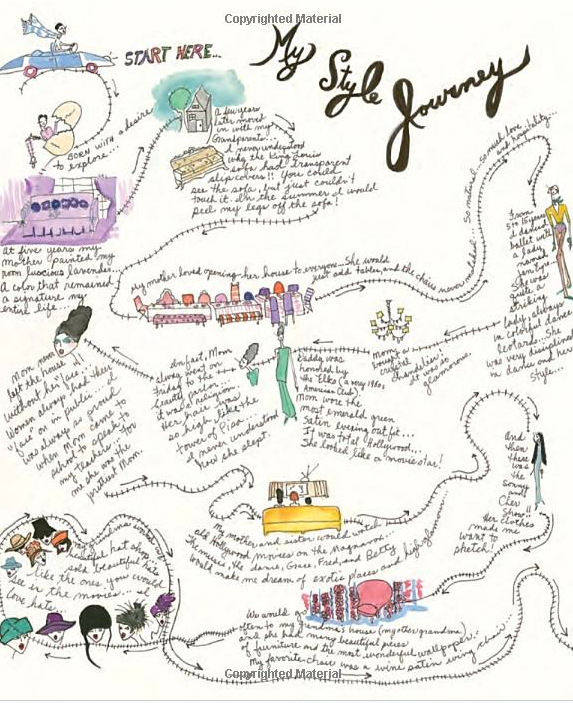 Copyrighted Material
START HERE...
My
Style
Journey
BORN WITH a desire
to explore...
a few years
later moved
in with my
Grandparents...
I never understood
why the King Louis
sofa had transparent
slipcovers!! You could
see the sofa, but just couldn't
touch it. In the summer I would
peel my legs off the sofa!
At five years my
mother painted my
room luscious lavender...
A color that remained
a signature my
entire life...
My mother loved opening her house to everyone... She would
just add tables, and the chairs never matched... So natural, so much love
and hospitality...
From
5 to 15 years
I danced
ballet with
a lady
named
She was
quite a
striking
lady, always
in colorful dance
leotards... She
was very disciplined
in dance and her
style...
Mommy
bought a
crystal
chandelier
It was so
glamorous.
Daddy was
honored by
The Elks (a very 1960s
American Club).
Mom wore the
most emerald green
satin evening outfit...
It was total Hollywood...
She looked like a movie star!
In fact, Mom
always went on
Friday to the
beauty parlor...
it was a religion.
Her hair was
so high, like the
tower of Pisa...
I never understood
how she slept
Mom never
left the house
without her "face"...
Women always had their
"face" on in public... I
was always so proud
when Mom came to
school to speak to
my teachers... For
me she was the
prettiest Mom.
And
then
there
was
the
Sonny
and
Cher
Show!!
Her clothes
made me
want to
sketch!
My mother and sister would watch
old Hollywood movies on the Magnavox...
The music, the dance, Grace, Fred, and Betty
would make me dream of exotic places and high glam
beautiful hat shop
sold beautiful hats
like the ones you would
see in the movies... I
love hats...
We would go
often to my grandma's house (my other grandma)
and she had many beautiful pieces
of furniture and the most wonderful wallpaper...
My favorite chair was a wine satin wing chair...
Copyrighted Material